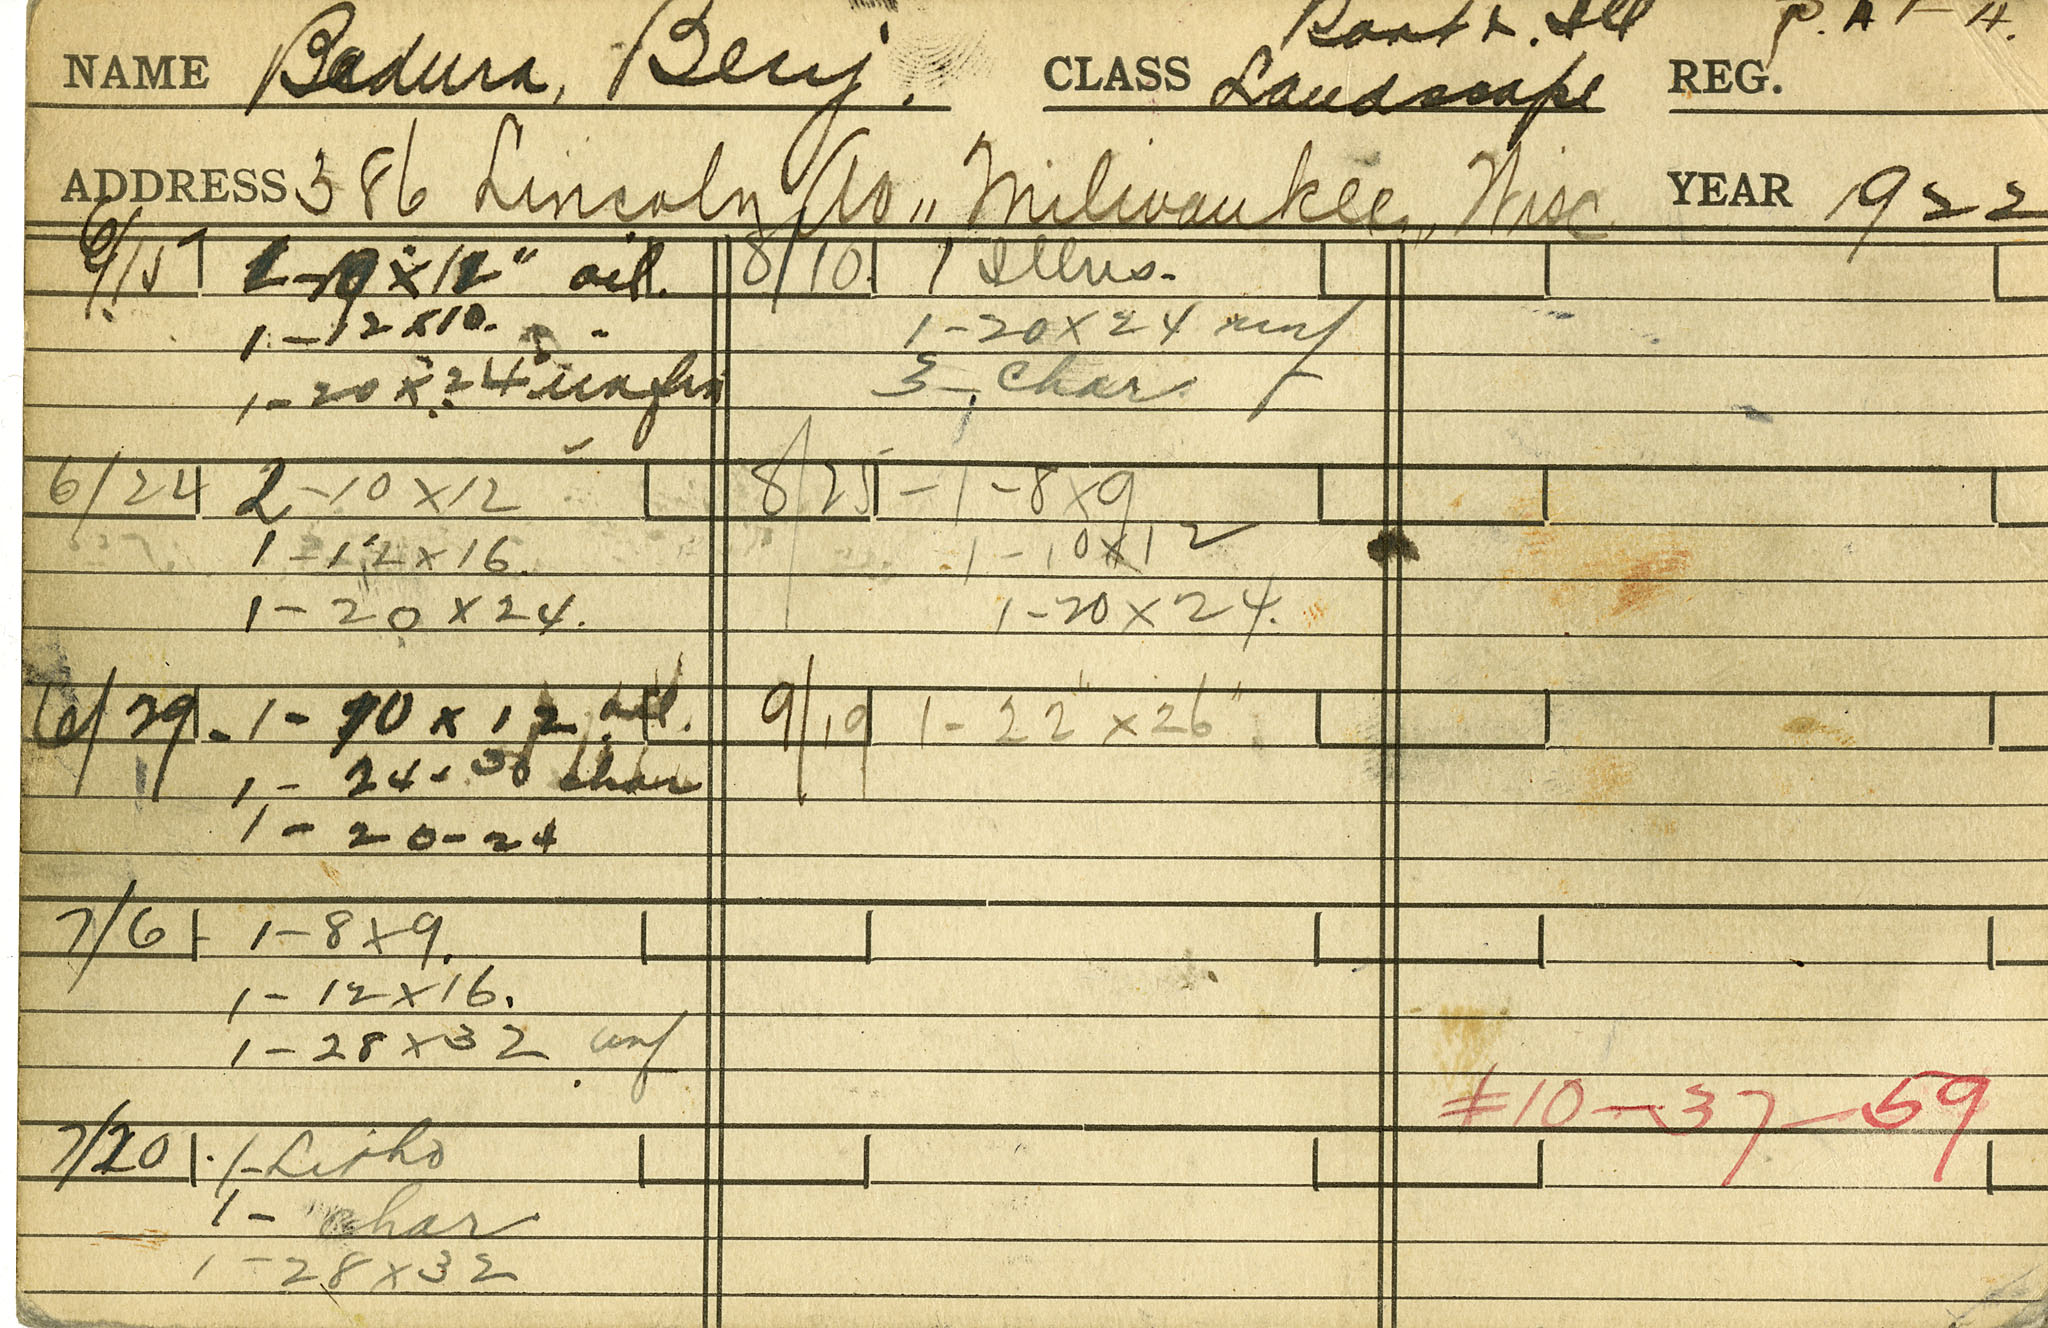 Port & Ill P.A.
NAME Badura, Benj. CLASS Landscape REG.
ADDRESS 386 Lincoln Av., Milwaukee, Wisc YEAR 1922
6/15 1-9x12" oil.
1-12x10. "
1-20x24 unfin
6/24 2-10x12
1-12x16.
1-20x24.
6/29 - 1-10x12 oil.
1-24-30 char
1-20-24
7/6 1-8x9.
1-12x16.
1-28x32 unf
7/20 1-Litho
1- char
1-28x32
8/10 1 Illus.
1-20x24 unf
3- char.
8/25 - 1-8x9
1-10x12
1-20x24.
9/19 1-22"x26"
#10-37-59